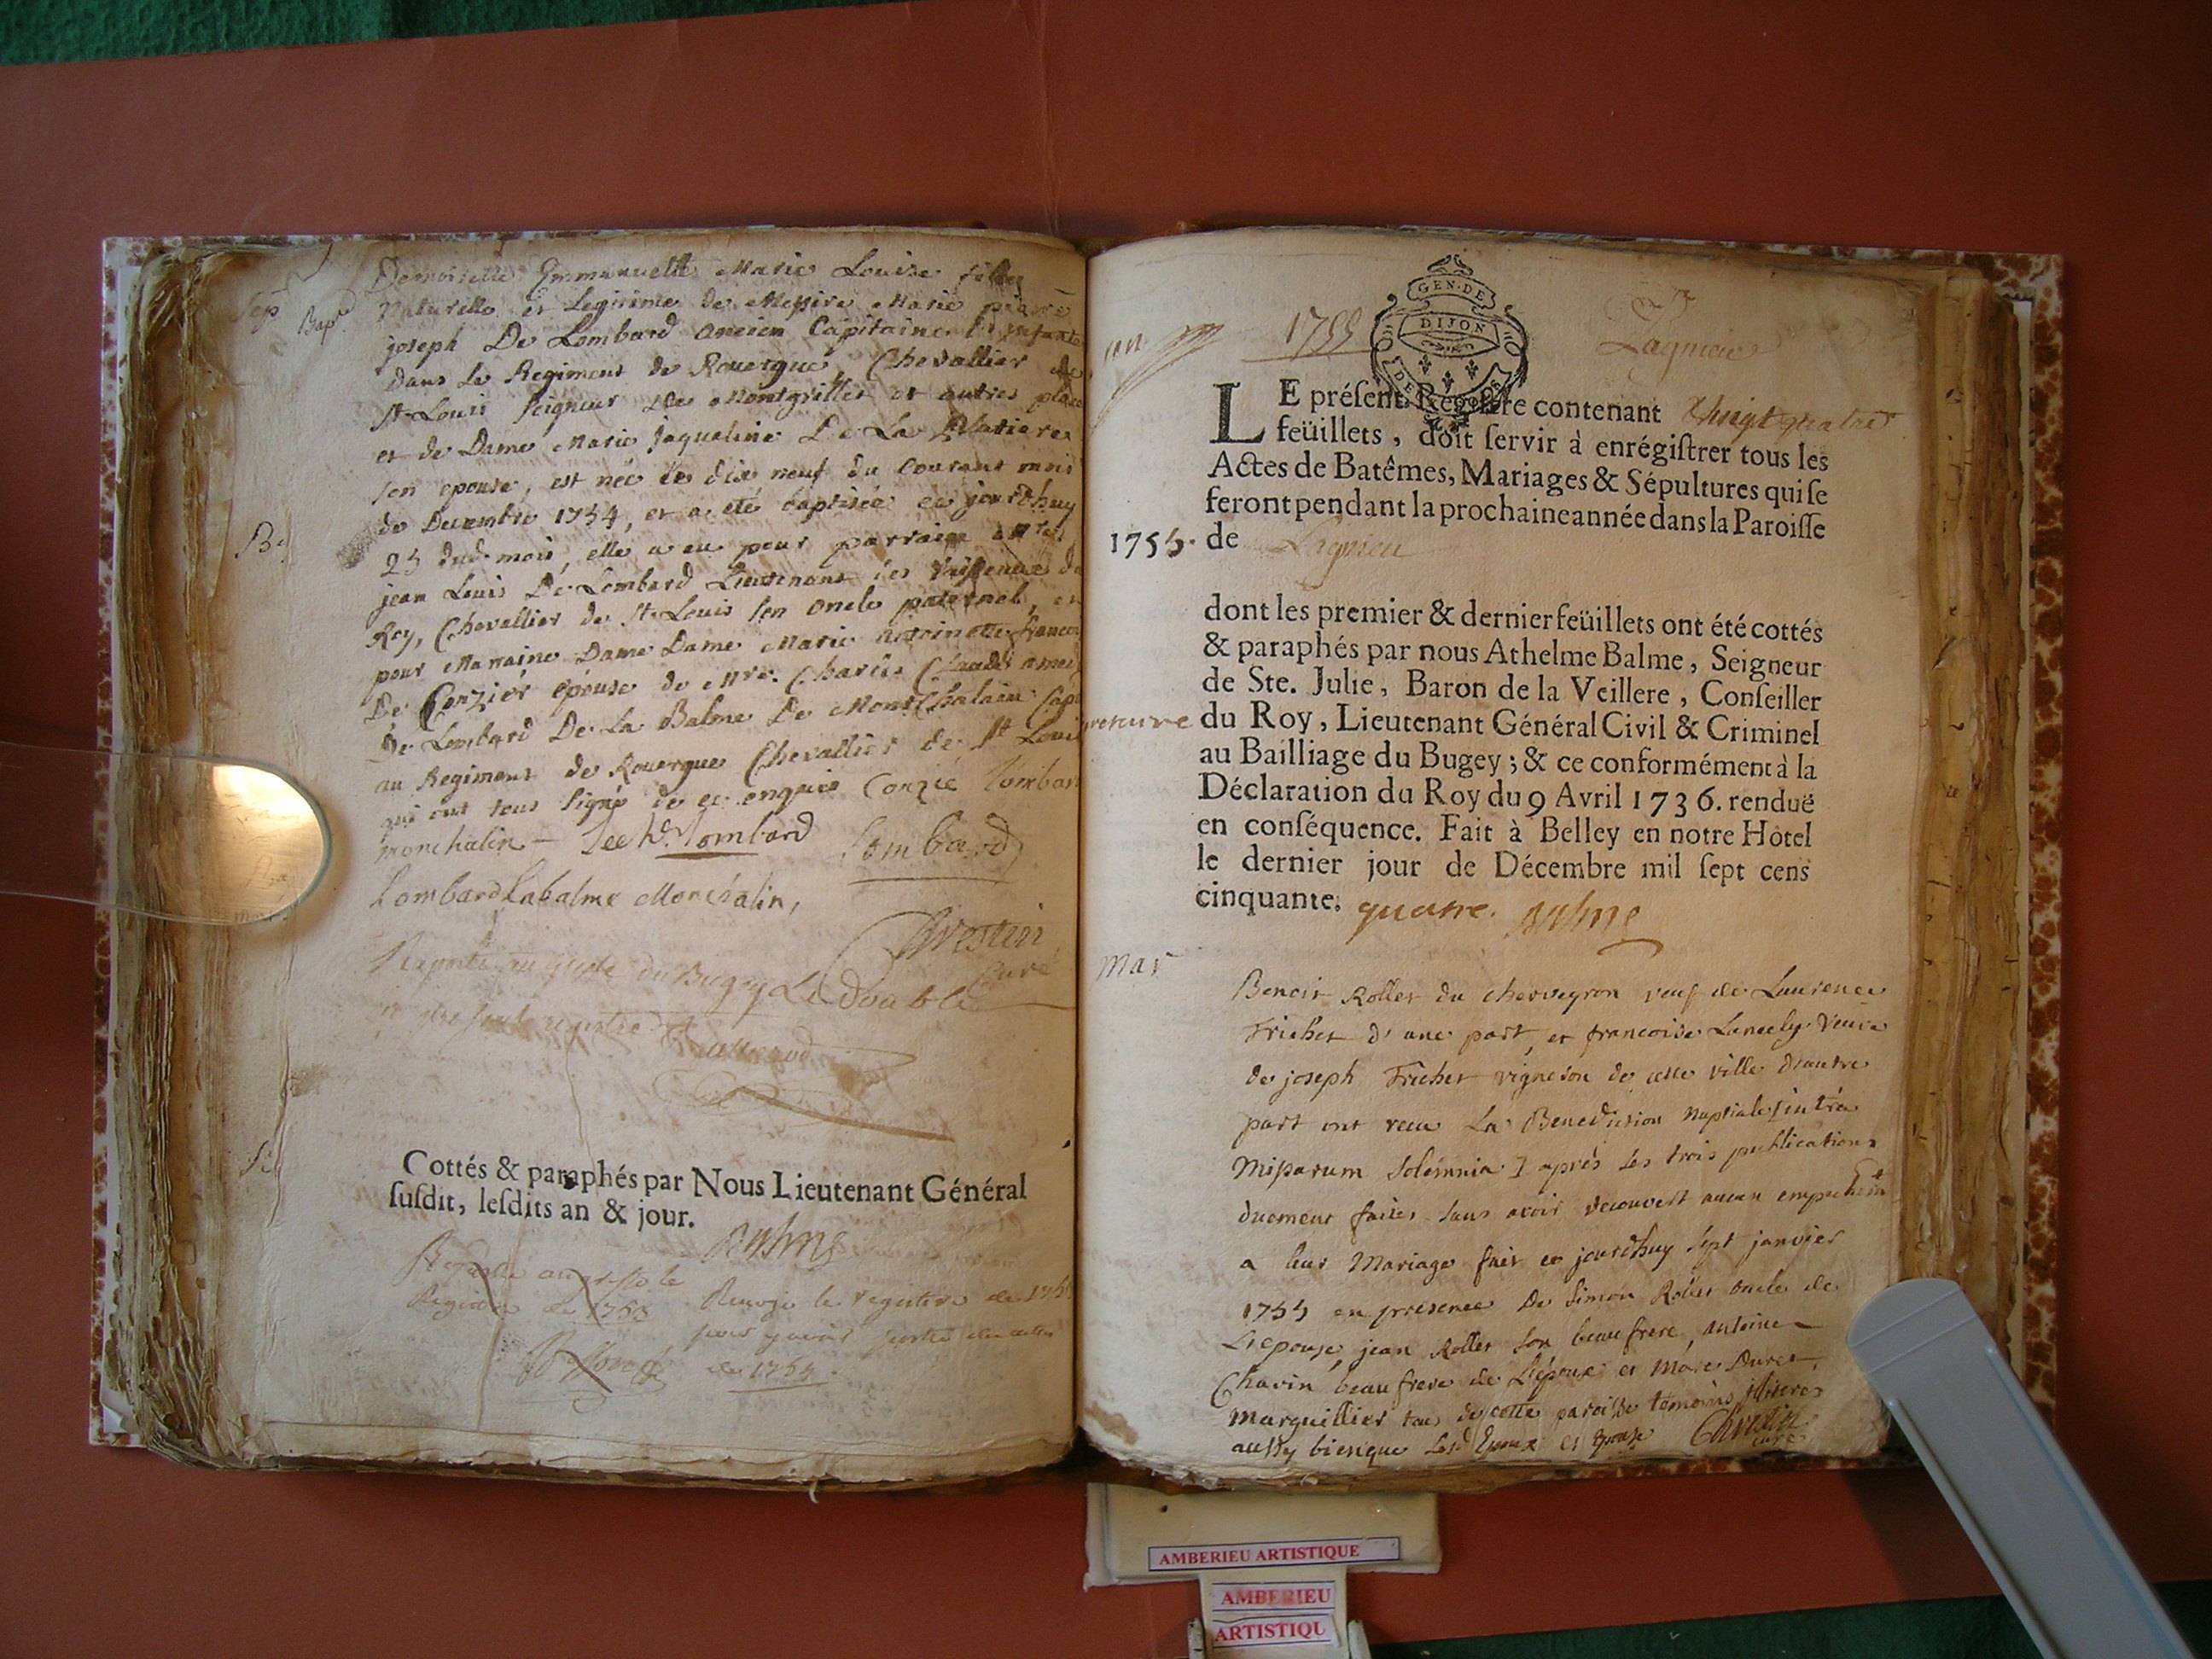 Bap.
Demoiselle Emmanuelle Marie Louise fille
Naturelle et Legitime de Messire Marie pierre
joseph De Lombard ancien Capitaine
dans le Regiment de Rouergue, Chevallier de
St. Louis seigneur de Montgrillet et autres places
et de Dame Marie Jaqueline De La
son epouse, est née le dix neuf du courant mois
de Decembre 1754, et a eté baptisée ce jourdhuy
25 dud. mois, elle a eu pour parrain
jean Louis De Lombard Lieutenant des Vaisseaux du
Roy, Chevallier de St. Louis son oncle paternel, et
pour Marraine Dame Dame Marie
De Conzier epouse de Mre. Charles Claude
de Lombard De La Balme De MontChalain
au Regiment de Rouergue Chevallier de St Louis
qui ont tous signé de ce enquis Conzié Lombard
monchalin - Lombard Lombard
Lombard Labalme Monchalin,
Chrestin
Curé
Cottés & paraphés par Nous Lieutenant Général
susdit, lesdits an & jour.
Balme
Registre de 1753
le registre de
de 1754
1755
GEN. DE
DIJON
Lagnieu
LE présent Registre contenant Vingt quatre
feüillets, doit servir à enrégistrer tous les
Actes de Batêmes, Mariages & Sépultures qui se
feront pendant la prochaine année dans la Paroisse
1755. de Lagnieu
dont les premier & dernier feüillets ont été cottés
& paraphés par nous Athelme Balme, Seigneur
de Ste. Julie, Baron de la Veillere, Conseiller
du Roy, Lieutenant Général Civil & Criminel
au Bailliage du Bugey; & ce conformément à la
Déclaration du Roy du 9 Avril 1736. renduë
en conséquence. Fait à Belley en notre Hôtel
le dernier jour de Décembre mil sept cens
cinquante. quatre. Balme
Mar
Benoit Rollet du cherveyron veuf de Laurence
Trichet d'une part, et francoise Lancely Veuve
de joseph Trichet vigneron de cette ville d'autre
part ont recu La Benediction Nuptiale
Missarum Solemnia ] aprés les trois publications
duement faites sans avoir decouvert aucun
a leur Mariage fait ce jourdhuy sept janvier
1755 en presence De Simon Rollet oncle de
L'epouse, jean Rollet son beaufrere, antoine
Chavin beaufrere de L'épouse et Marc Duret,
Marguillier tous de cette paroisse temoins
aussy bien que Epoux et Epouse Chrestin
curé
AMBERIEU ARTISTIQUE
AMBERIEU
ARTISTIQU